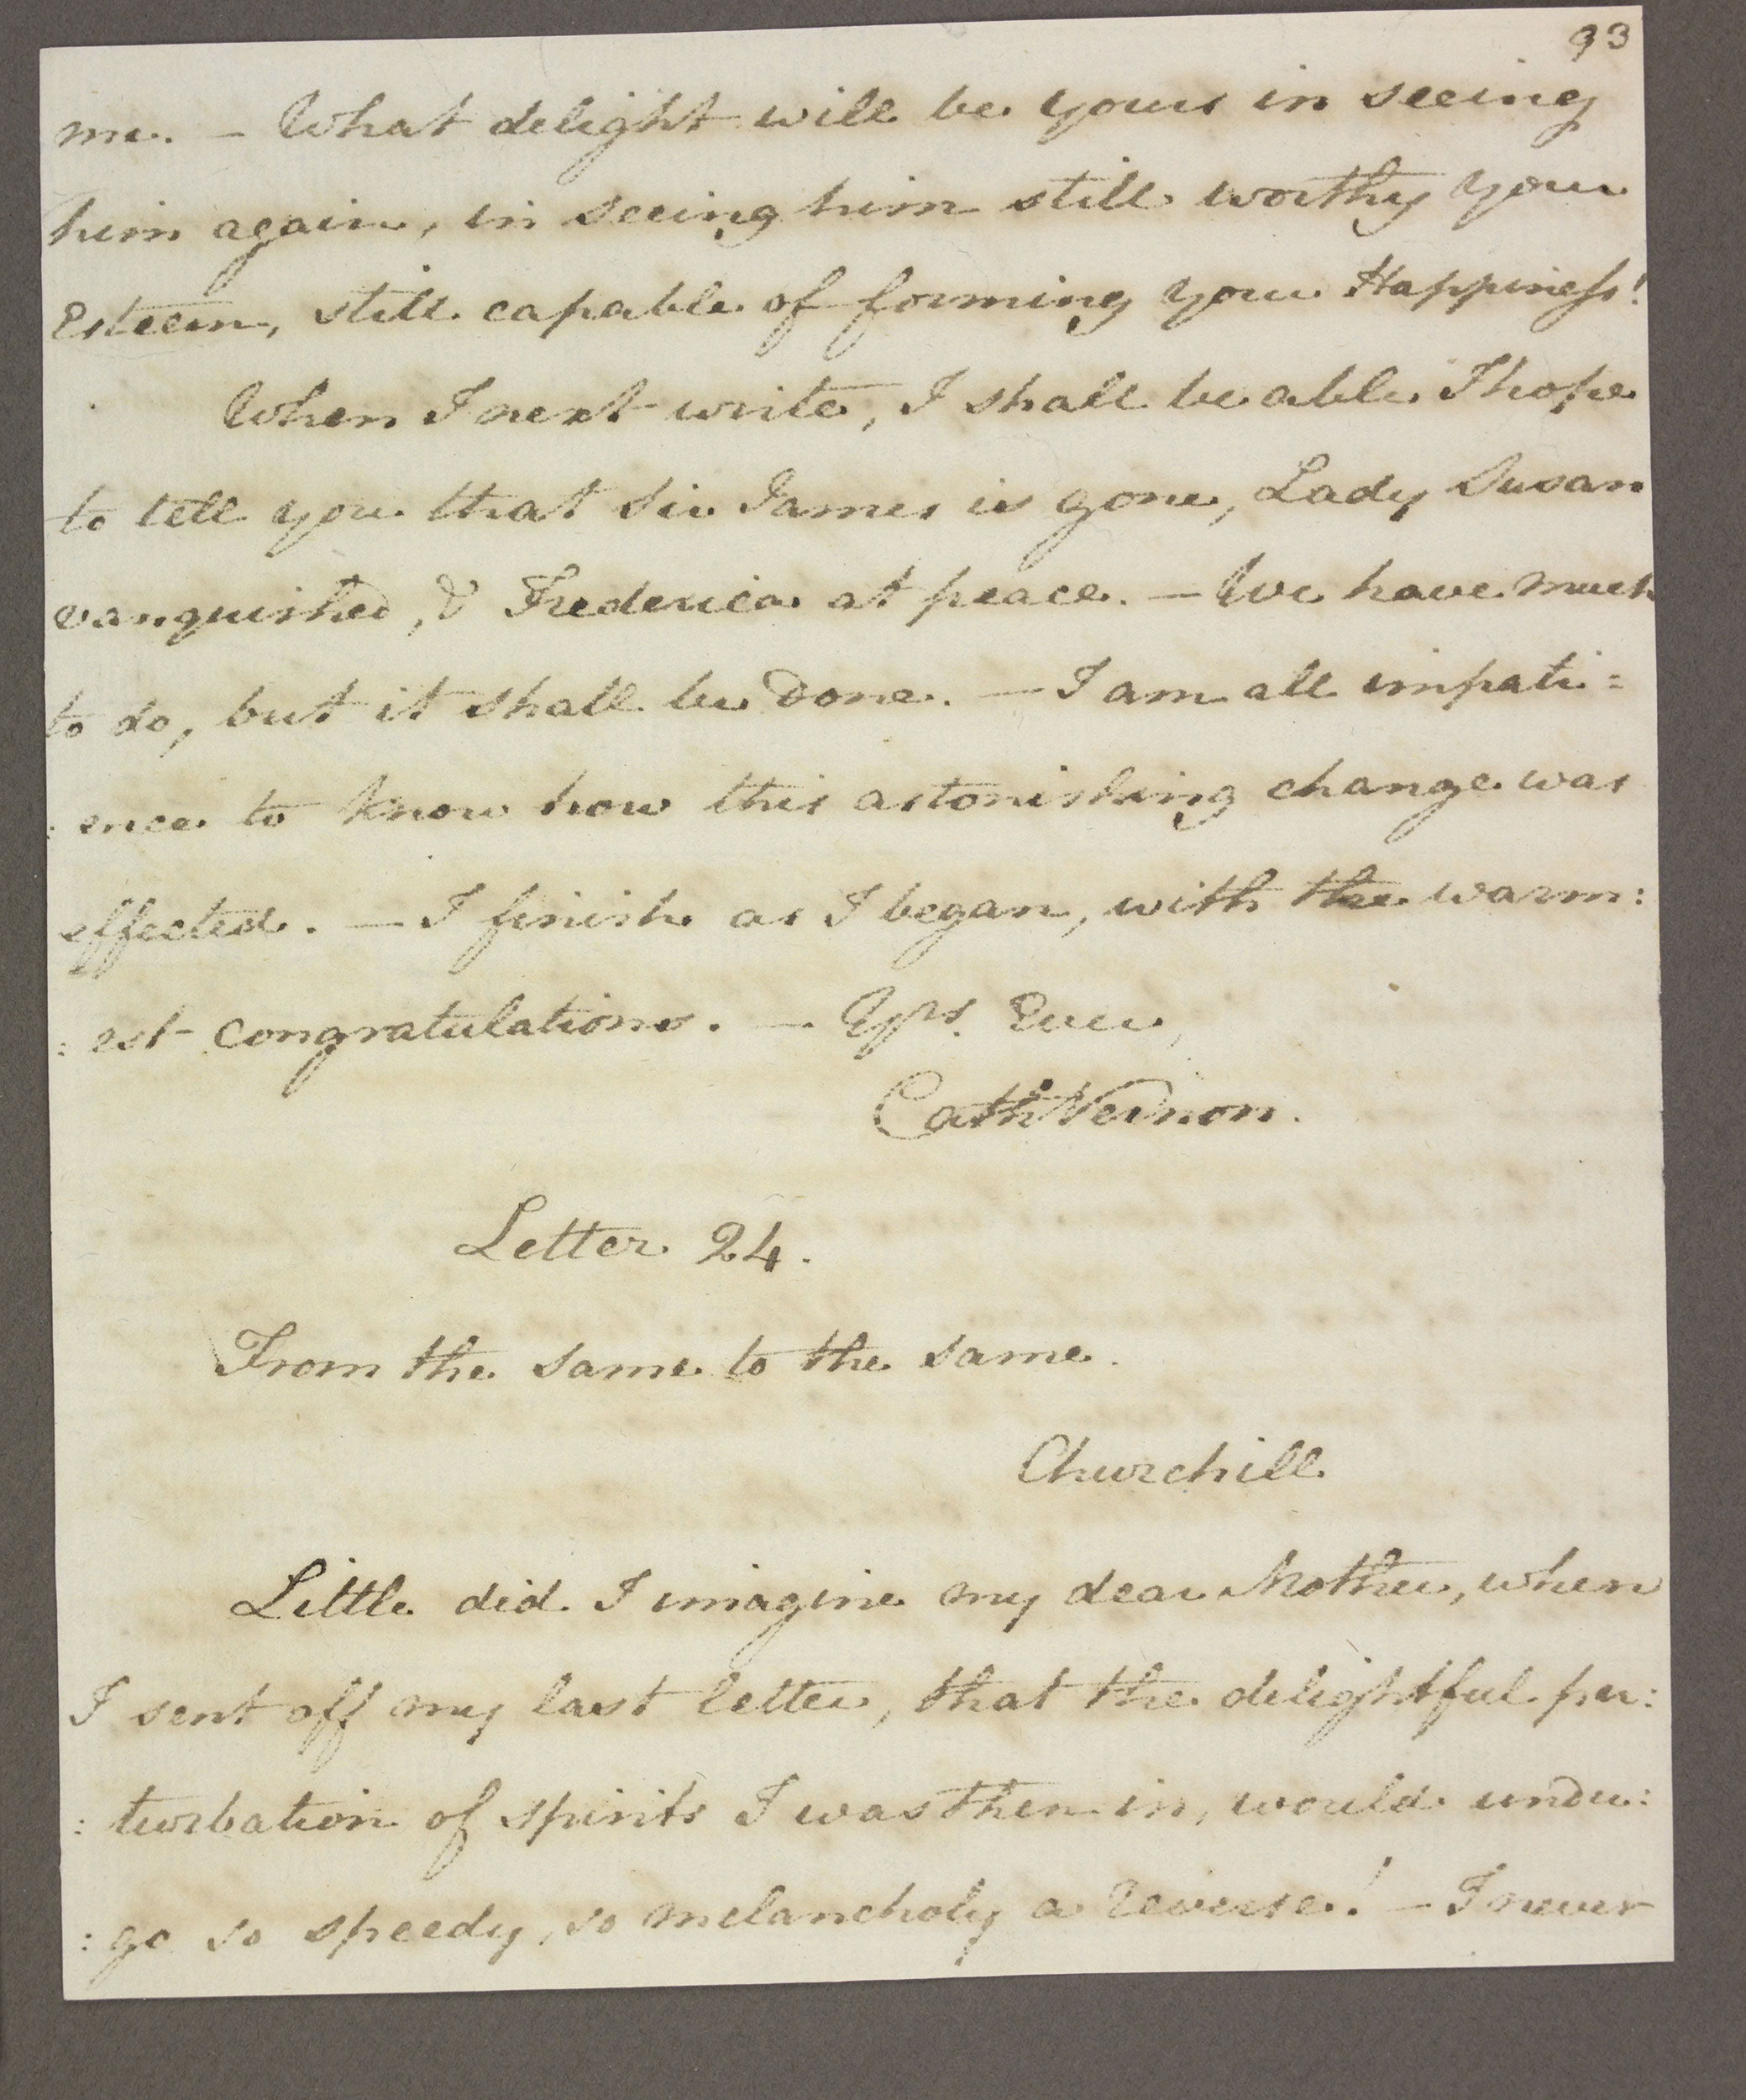 93
me. – What delight will be yours in seeing
him again, in seeing him still worthy your
Esteem, still capable of forming your Happiness!
When I next write, I shall be able I hope
to tell you that Sir James is gone, Lady Susan
vanquished, & Frederica at peace. – We have much
to do, but it shall be done. – I am all impati=
:ence to know how this astonishing change was
effected. – I finish as I began, with the warm:
:est congratulations. – Yrs. Ever,
Cath Vernon.
Letter 24.
From the same to the same.
Churchill
Little did I imagine my dear Mother, when
I sent off my last letter, that the delightful per:
:turbation of spirits I was then in, would under:
:go so speedy, so melancholy a reverse! – I never